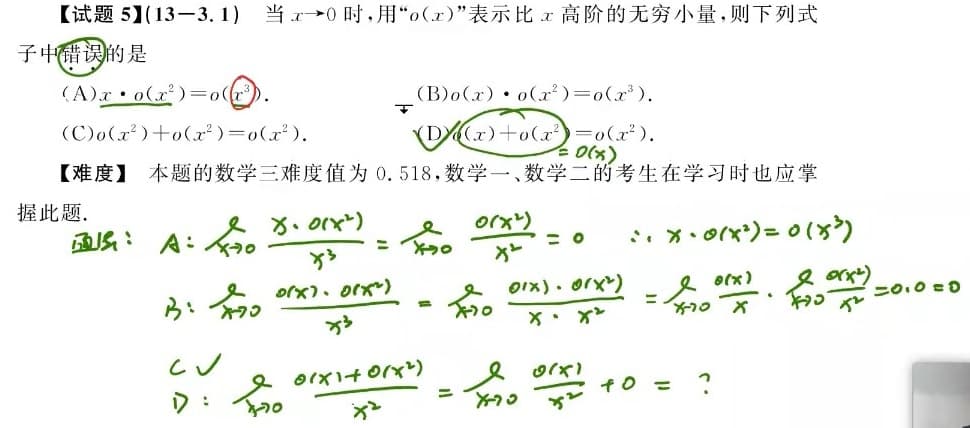 【试题 5】(13—3.1) 当 x→0 时,用“o(x)”表示比 x 高阶的无穷小量,则下列式
子中错误的是
(A)x·o(x²)=o(x³). (B)o(x)·o(x²)=o(x³).
(C)o(x²)+o(x²)=o(x²). (D)o(x)+o(x²)=o(x²).
= o(x)
【难度】 本题的数学三难度值为 0.518,数学一、数学二的考生在学习时也应掌
握此题.
A: lim x→0 x·o(x²)/x³ = lim x→0 o(x²)/x² = 0 ∴ x·o(x²)=o(x³)
B: lim x→0 o(x)·o(x²)/x³ = lim x→0 o(x)·o(x²)/x·x² = lim x→0 o(x)/x · lim x→0 o(x²)/x² =0·0=0
C √
D: lim x→0 o(x)+o(x²)/x² = lim x→0 o(x)/x² +0 = ?